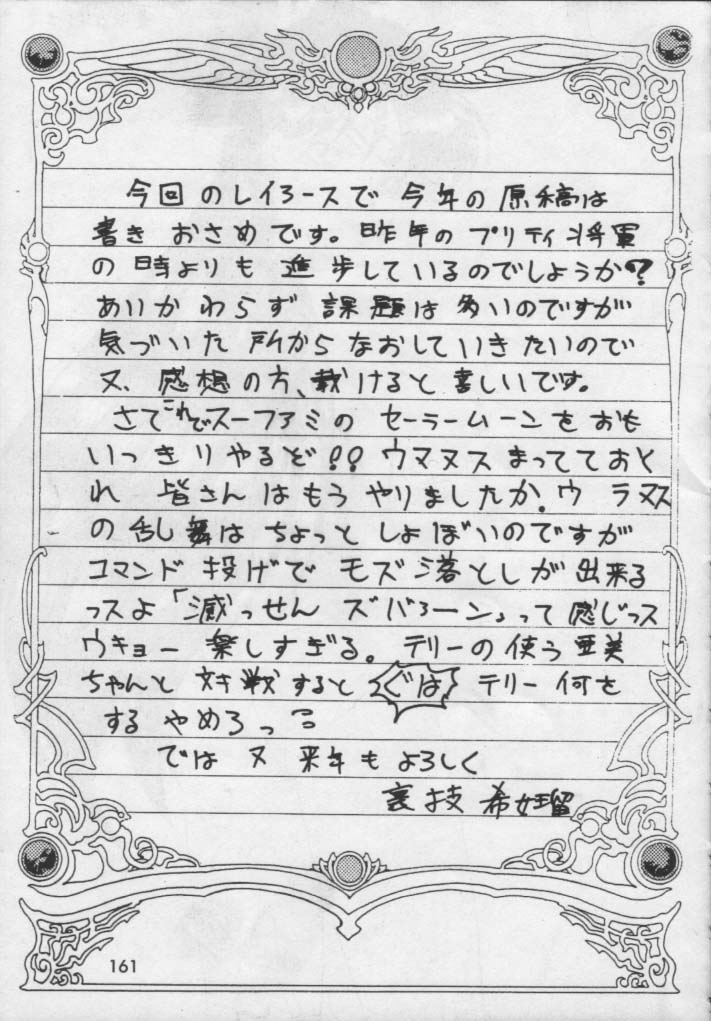 今回のレイろースで 今年の原稿は
書き おさめです。昨年の プリティ 将軍
の 時よりも 進歩しているのでしょうか?
あいかわらず 課題は 多いのですが
気づいた 所から なおしていきたいので
又、感想の方、栽けると 喜しいです。
さてこれでスーファミの セーラームーンを おも
いっきり やるぞ!! ウマヌス まってておく
れ 皆さんはもう やりましたか。ウラヌス
の 乱舞は ちょっと しょぼいのですが
コマンド 投げで モズ落としが 出来る
っスよ「滅っせん ズバろーン」って 感じっス
ウキョー 楽しすぎる。テリーの 使う 亜美
ちゃんと 対戦すると ぐは テリー 何を
する やめろっ
では 又 来年も よろしく
裏技 希
161